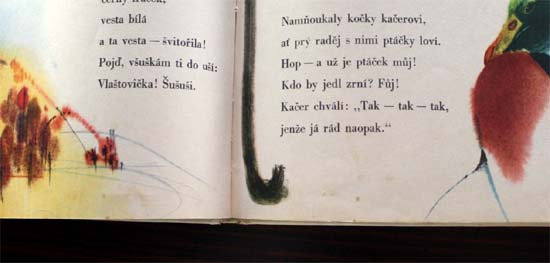 černý fráček,
vesta bílá
a ta vesta — švitořila!
Pojď, všuškám ti do uší:
Vlaštovička! Šušuší.
Namňoukaly kočky kačerovi,
ať prý raděj s nimi ptáčky loví.
Hop — a už je ptáček můj!
Kdo by jedl zrní? Fůj!
Kačer chválí: „Tak — tak — tak,
jenže já rád naopak.“